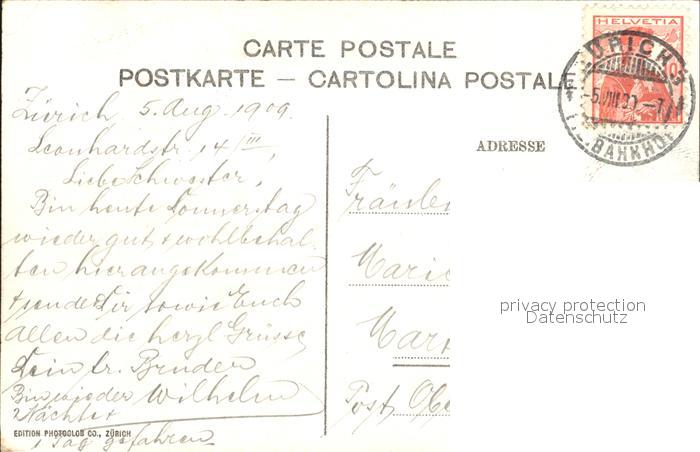 HELVETIA
CARTE POSTALE
POSTKARTE — CARTOLINA POSTALE
ZÜRICH
-5.VIII.09.-7
BAHNHOF
ADRESSE
Zürich 5. Aug. 1909.
Leonhardstr. 14/III
Liebe Schwester,
Bin heute Donnerstag
wieder gut & wohlbehal-
ten hier angekommen
& sende Dir sowie Euch
Allen die herzl. Grüsse,
Dein tr. Bruder
Wilhelm
Bin wieder
2 Nächte &
1 Tag gefahren
EDITION PHOTOGLOB CO., ZÜRICH
Fräulei
Marie
Mar
Post Obe
privacy protection
Datenschutz